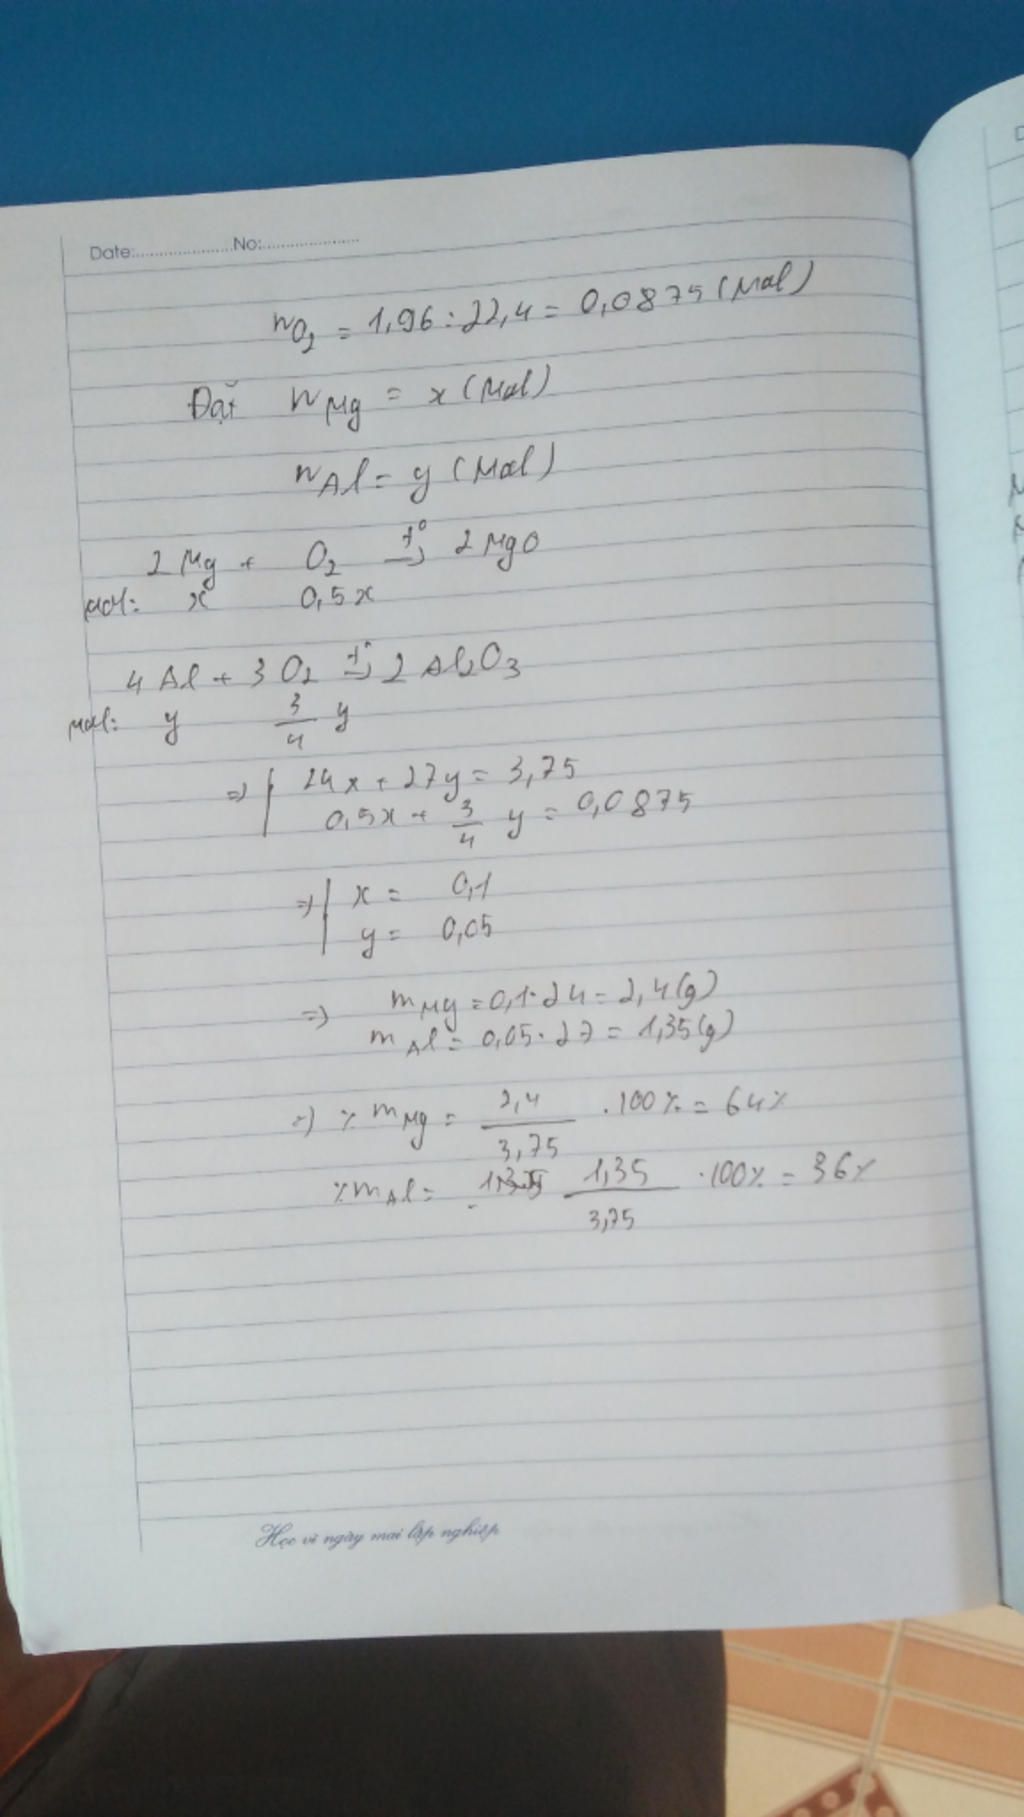 Date:......................No:......................
nO₂ = 1,96 : 22,4 = 0,0875 (Mol)
Đặt nMg = x (Mol)
nAl = y (Mol)
2Mg + O₂ t°→ 2MgO
mol: x 0,5x
4Al + 3O₂ t°→ 2Al₂O₃
mol: y 3/4 y
=> | 24x + 27y = 3,75
0,5x + 3/4 y = 0,0875
=> | x = 0,1
y = 0,05
=> mMg = 0,1.24 = 2,4(g)
mAl = 0,05.27 = 1,35(g)
=> %mMg = 2,4/3,75 .100% = 64%
%mAl = 1,35/3,75 .100% = 36%
Học vì ngày mai lập nghiệp